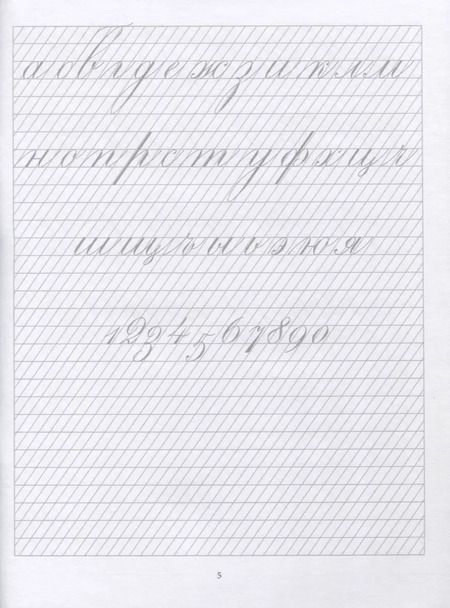 а б в г д е ж з и к л м
н о п р с т у ф х ц ч
ш щ ъ ы ь э ю я
1 2 3 4 5 6 7 8 9 0
5